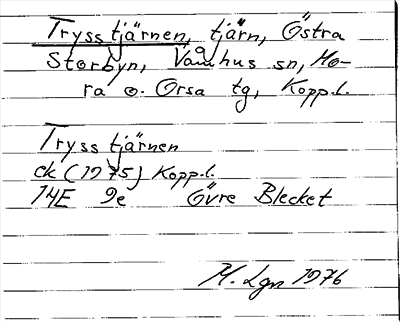 Tryss tjärnen, tjärn, Östra
Storbyn, Våmhus sn, Mo-
ra o. Orsa tg, Kopp.l.
Tryss tjärnen
ek (1975) Kopp.l.
14E 9e Övre Blecket
M. Lgn 1976